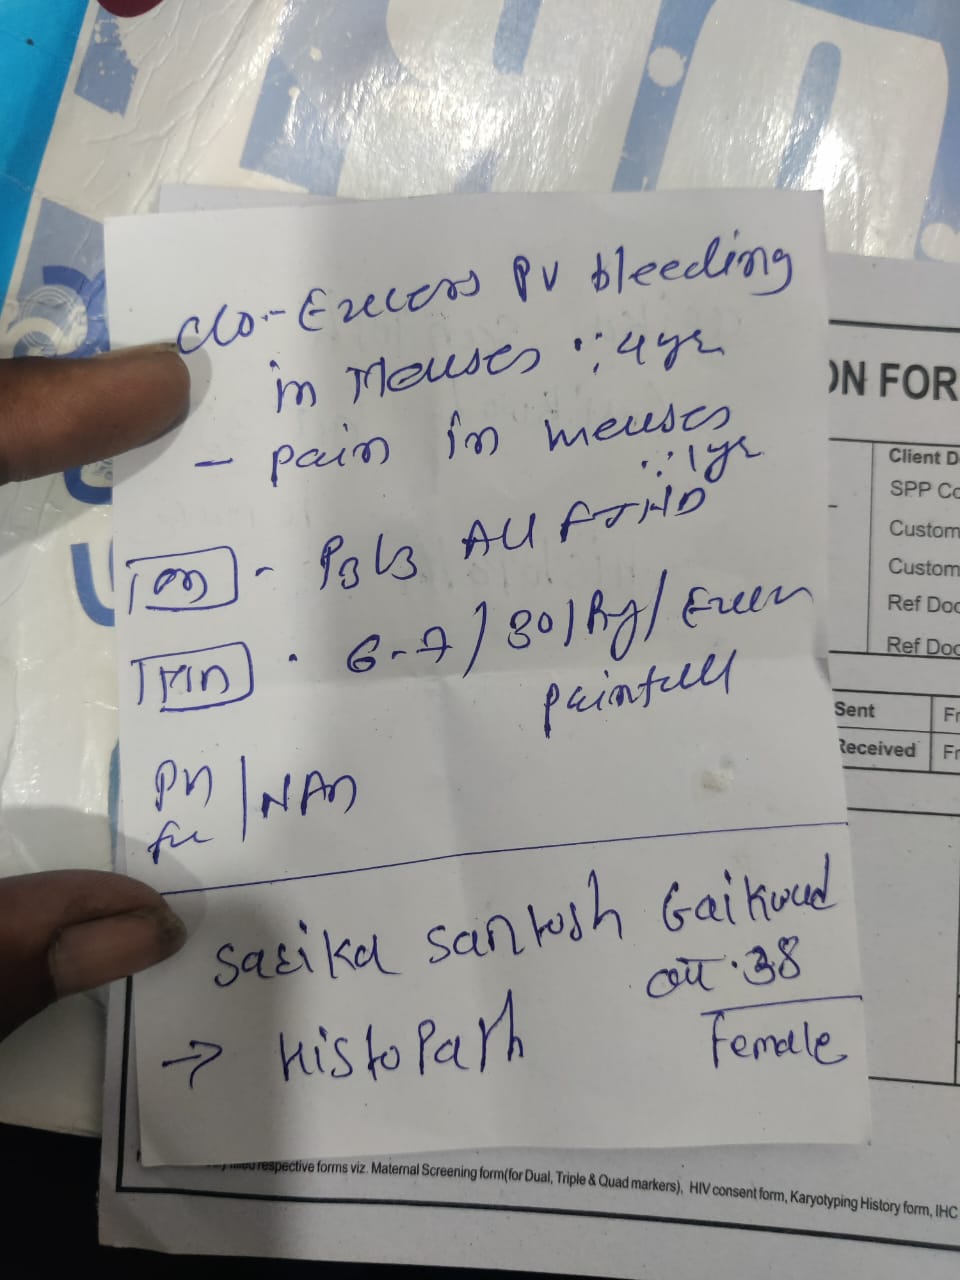 c/o - Excess PV bleeding
in Menses ∵ 4 yr
- pain in menses
∵ 1yr
OH - P3L3 All FTND
MH - 6-7/30/Rg/Excess
painfull
/NAD
Sarika Santosh Gaikwad
38
→ HistoPath Female
ON FOR
Client D
SPP Co
Custom
Custom
Ref Doc
Ref Doc
Sent Fr
Received Fr
respective forms viz. Maternal Screening form(for Dual, Triple & Quad markers), HIV consent form, Karyotyping History form, IHC